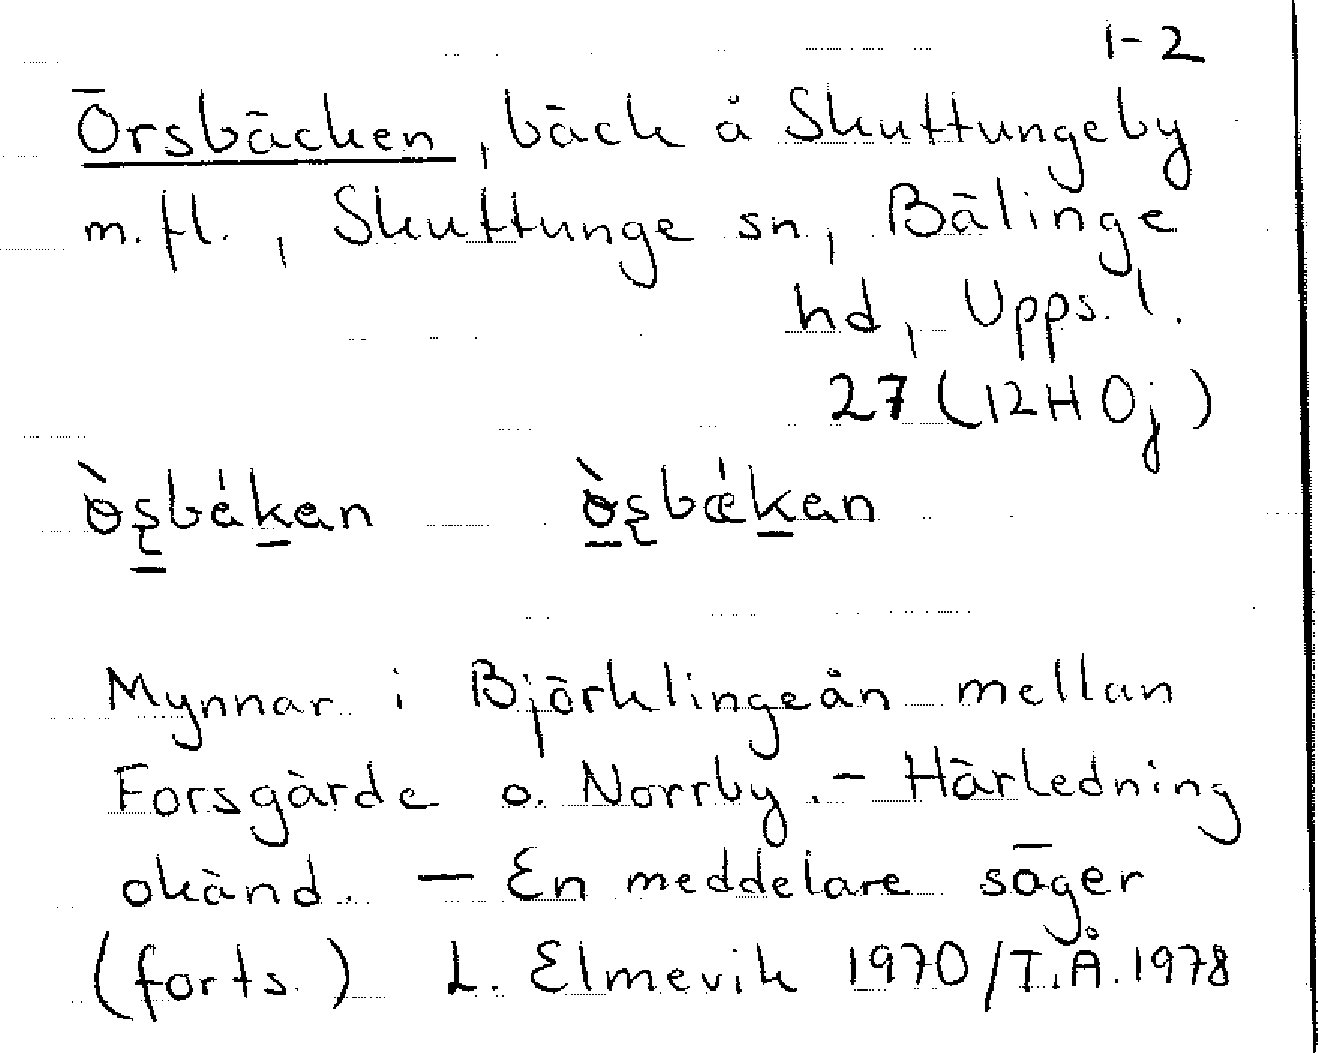 1-2
Örsbäcken, bäck å Skuttungeby
m.fl., Skuttunge sn, Bälinge
hd, Upps. l.
27 (12H 0j)
Mynnar i Björklingeån mellan
Forsgärde o. Norrby. - Härledning
okänd. — En meddelare säger
(forts.) L. Elmevik 1970/T.Å. 1978